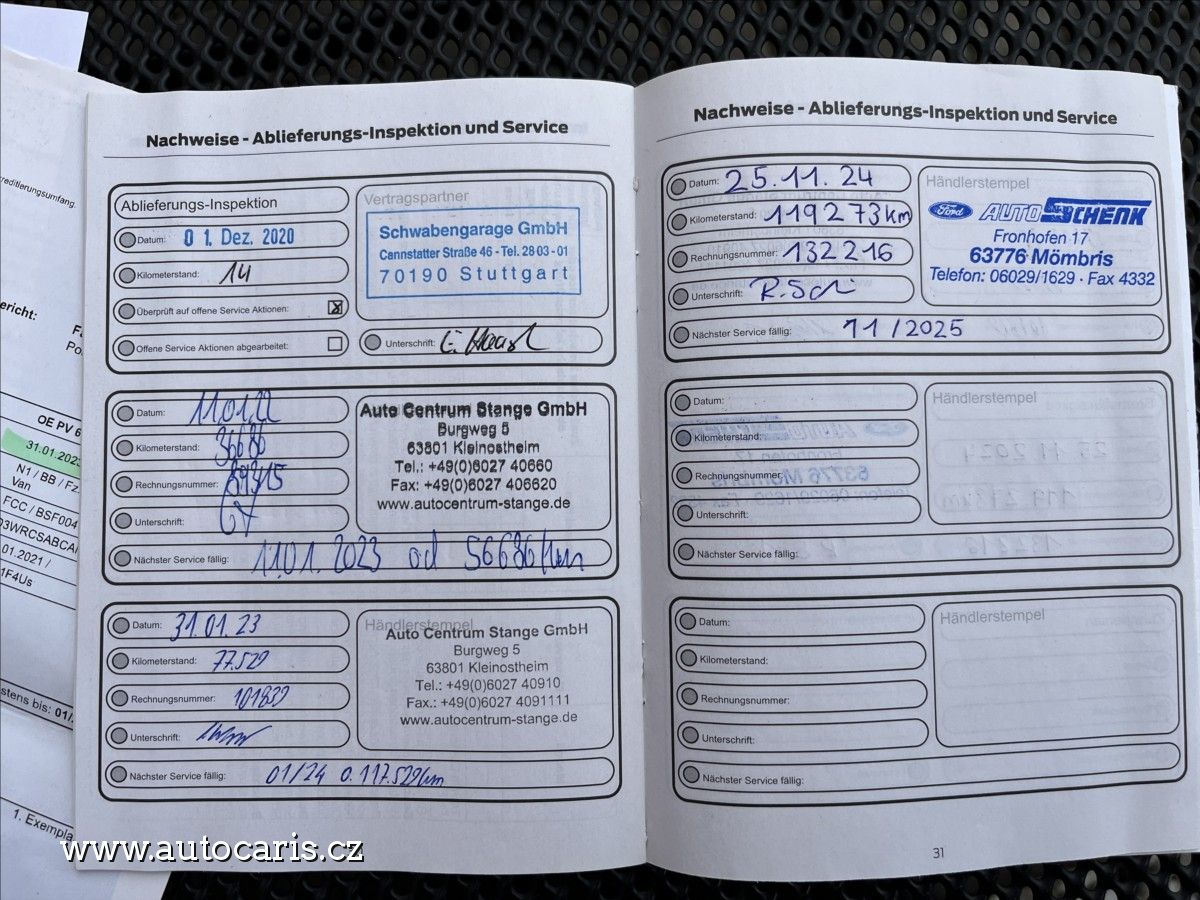 reditierungsumfang.
ericht:
OE PV 6
31.01.2023
N1 / BB / Fz.
Van
FCC / BSF004
03WRCSABCA
.01.2021 /
1F4Us
stens bis: 01/
1. Exempla
Nachweise - Ablieferungs-Inspektion und Service
Ablieferungs-Inspektion
Datum: 01. Dez. 2020
Kilometerstand: 14
Überprüft auf offene Service Aktionen: ☒
Offene Service Aktionen abgearbeitet: ☐
Vertragspartner
Schwabengarage GmbH
Cannstatter Straße 46 - Tel. 28 03 - 01
70190 Stuttgart
Unterschrift:
Datum: 11.01.22
Kilometerstand: 36686
Rechnungsnummer: 89315
Unterschrift:
Nächster Service fällig: 11.01.2023 od 56686km
Auto Centrum Stange GmbH
Burgweg 5
63801 Kleinostheim
Tel.: +49(0)6027 40660
Fax: +49(0)6027 406620
www.autocentrum-stange.de
Datum: 31.01.23
Kilometerstand: 77.529
Rechnungsnummer: 101839
Unterschrift:
Nächster Service fällig: 01/24 o. 117.529km
Händlerstempel
Auto Centrum Stange GmbH
Burgweg 5
63801 Kleinostheim
Tel.: +49(0)6027 40910
Fax.: +49(0)6027 4091111
www.autocentrum-stange.de
Nachweise - Ablieferungs-Inspektion und Service
Datum: 25.11.24
Kilometerstand: 119273km
Rechnungsnummer: 132216
Unterschrift:
Nächster Service fällig: 11/2025
Händlerstempel
Ford AUTO SCHENK
Fronhofen 17
63776 Mömbris
Telefon: 06029/1629 · Fax 4332
Datum:
Kilometerstand:
Rechnungsnummer:
Unterschrift:
Nächster Service fällig:
Händlerstempel
Datum:
Kilometerstand:
Rechnungsnummer:
Unterschrift:
Nächster Service fällig:
Händlerstempel
31
www.autocaris.cz